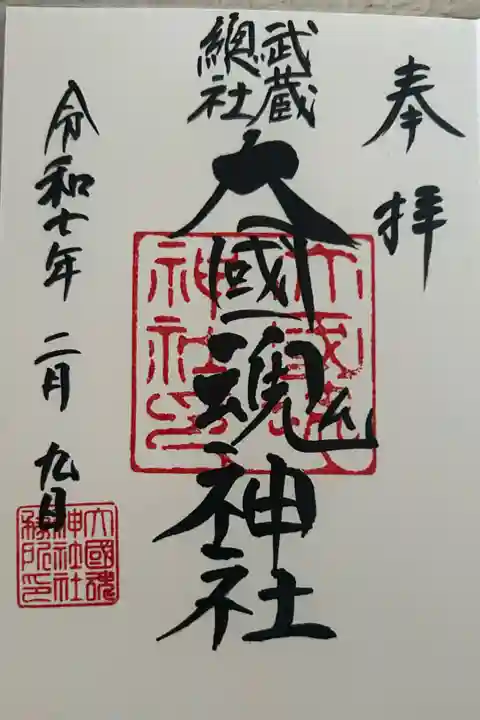 奉拝
武蔵
總社
大國魂神社
大國魂
神社印
令和七年 二月 九日
大國魂
神社社
務所印